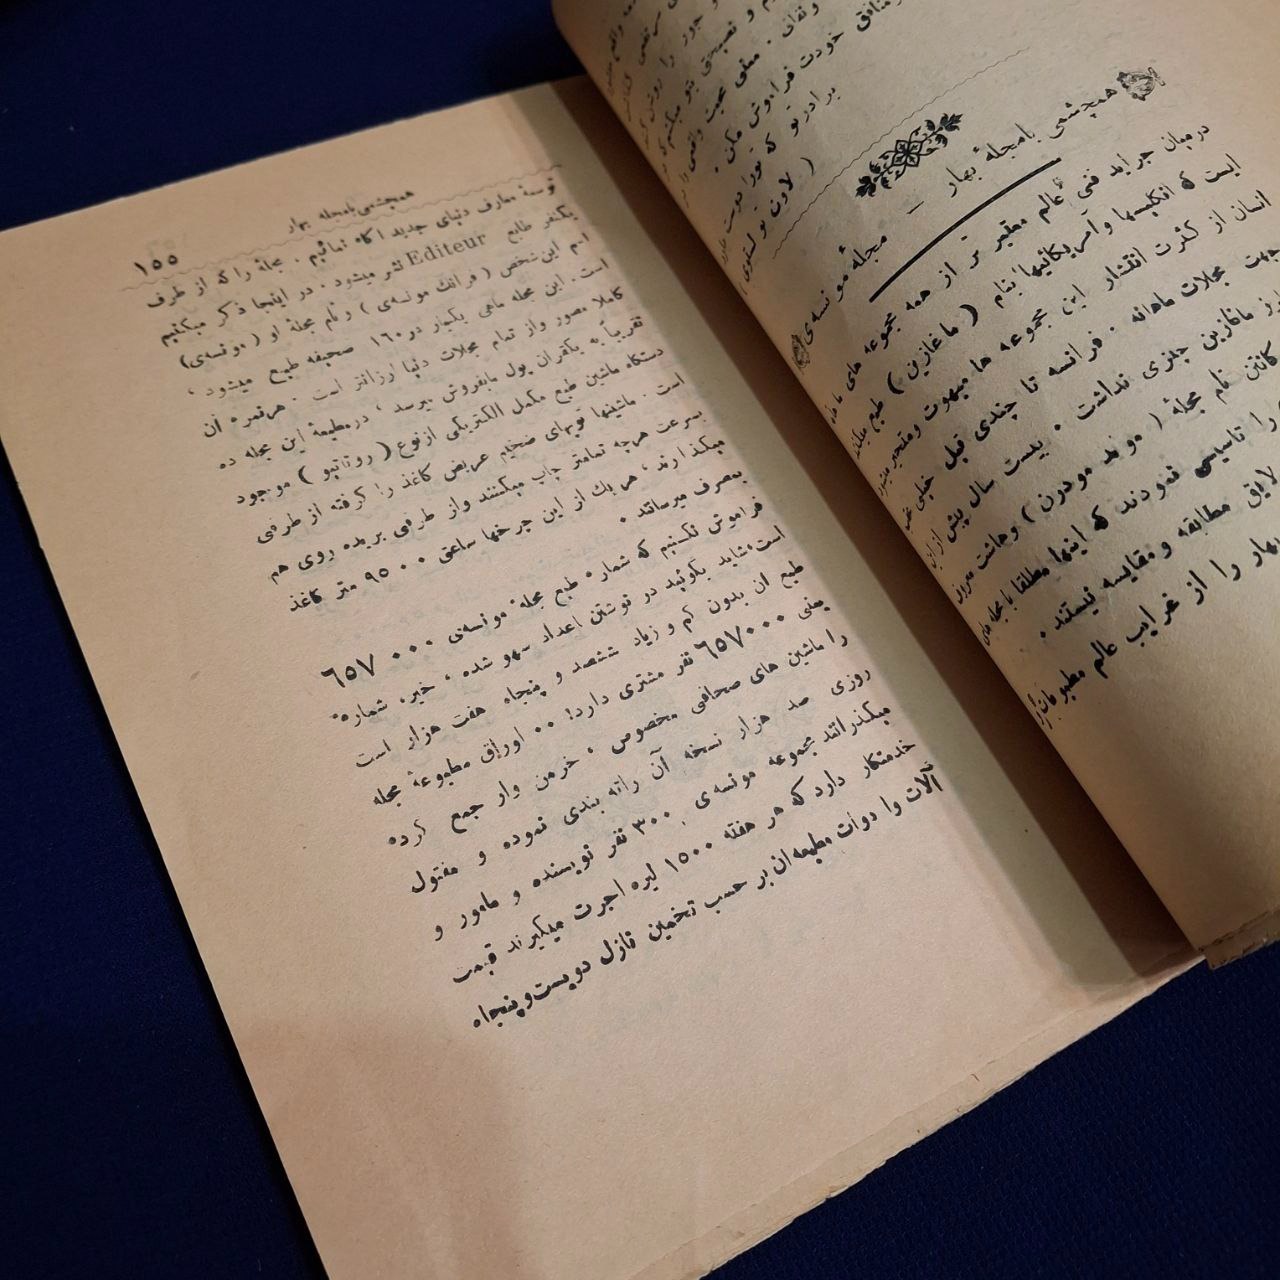 خودت فراموش مکن .
برادر تو که تو را دوست دارد
( لاون تولستوی )
همچشمی بامجلهٔ بهار — مجلهٔ مونسه‌ی
در میان جراید فنی عالم معتبر تر از همه مجموعه های ماهانه
ایست که انگلیسها و آمریکائیها بنام ( ماغازین ) طبع میکنند
انسان از کثرت انتشار این مجموعه ها مبهوت و متحیر میشود
جهت مجلات ماهانه . فرانسه تا چندی قبل خیلی
ماگازین چیزی نداشت . بیست سال پیش ازاین
نام مجلهٔ ( موند مودرن )
را تأسیس نمودند که اینها مطلقا با مجله های
لایق مطابقه و مقایسه نیستند .
بهار را از غرایب عالم مطبوعات و از
همچشمی بامجله بهار
١٥٥
توسعهٔ معارف دنیای جدید آگاه نمائیم . مجلهٔ را که از طرف
یکنفر طابع Editeur نشر میشود . در اینجا ذکر میکنیم
اسم این شخص ( فرانك مونسه‌ی ) و نام مجلهٔ او ( مونسه‌ی )
است . این مجله ماهی یکبار در ١٦٠ صحیفه طبع میشود ،
کاملا مصور و از تمام مجلات دنیا ارزانتر است . هر نمره آن
تقریباً به یکقران پول مابفروش میرسد ، در مطبعهٔ این مجله ده
دستگاه ماشین طبع مکمل الکتریکی از نوع ( روتاتیو ) موجود
است . ماشینها توپهای ضخیم عریض کاغذ را گرفته از طرفی
بسرعت هرچه تمامتر چاپ میکنند و از طرفی بریده روی هم
میگذارند ، هر یك از این چرخها ساعتی ٩٥٠٠ متر کاغذ
بمصرف میرسانند .
فراموش نکنیم که شماره طبع مجلهٔ مونسه‌ی ٦٥٧٠٠٠
است ، شاید بگوئید در نوشتن اعداد سهو شده ، خیر ، شماره
طبع ان بدون کم و زیاد ششصد و پنجاه هفت هزار است
یعنی ٦٥٧٠٠٠ نفر مشتری دارد ! ٠٠ اوراق مطبوعهٔ مجله
را ماشین های صحافی مخصوص ، خرمن وار جمع کرده
روزی صد هزار نسخه آن راته بندی نموده و مفتول
میگذرانند مجموعه مونسه‌ی ٣٠٠ نفر نویسنده و مامور و
خدمتکار دارد که هر هفته ١٥٠٠ لیره اجرت میگیرند قیمت
آلات وا دوات مطبعه ان بر حسب تخمین نازل دویست و پنجاه